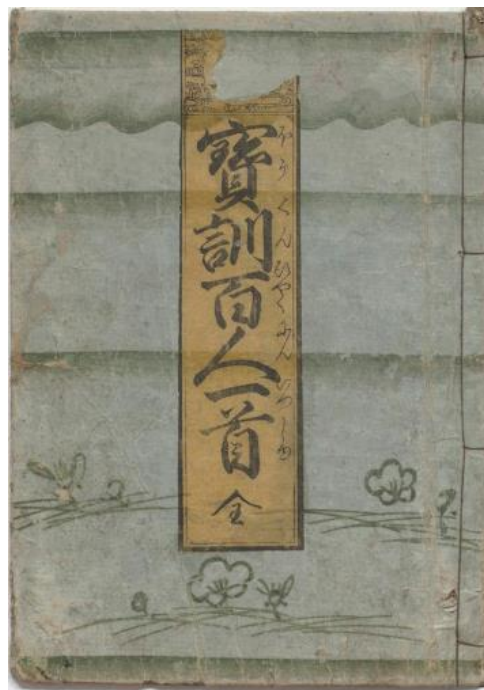 寳訓百人一首 全
ほうくんひやくにんいつしゆ